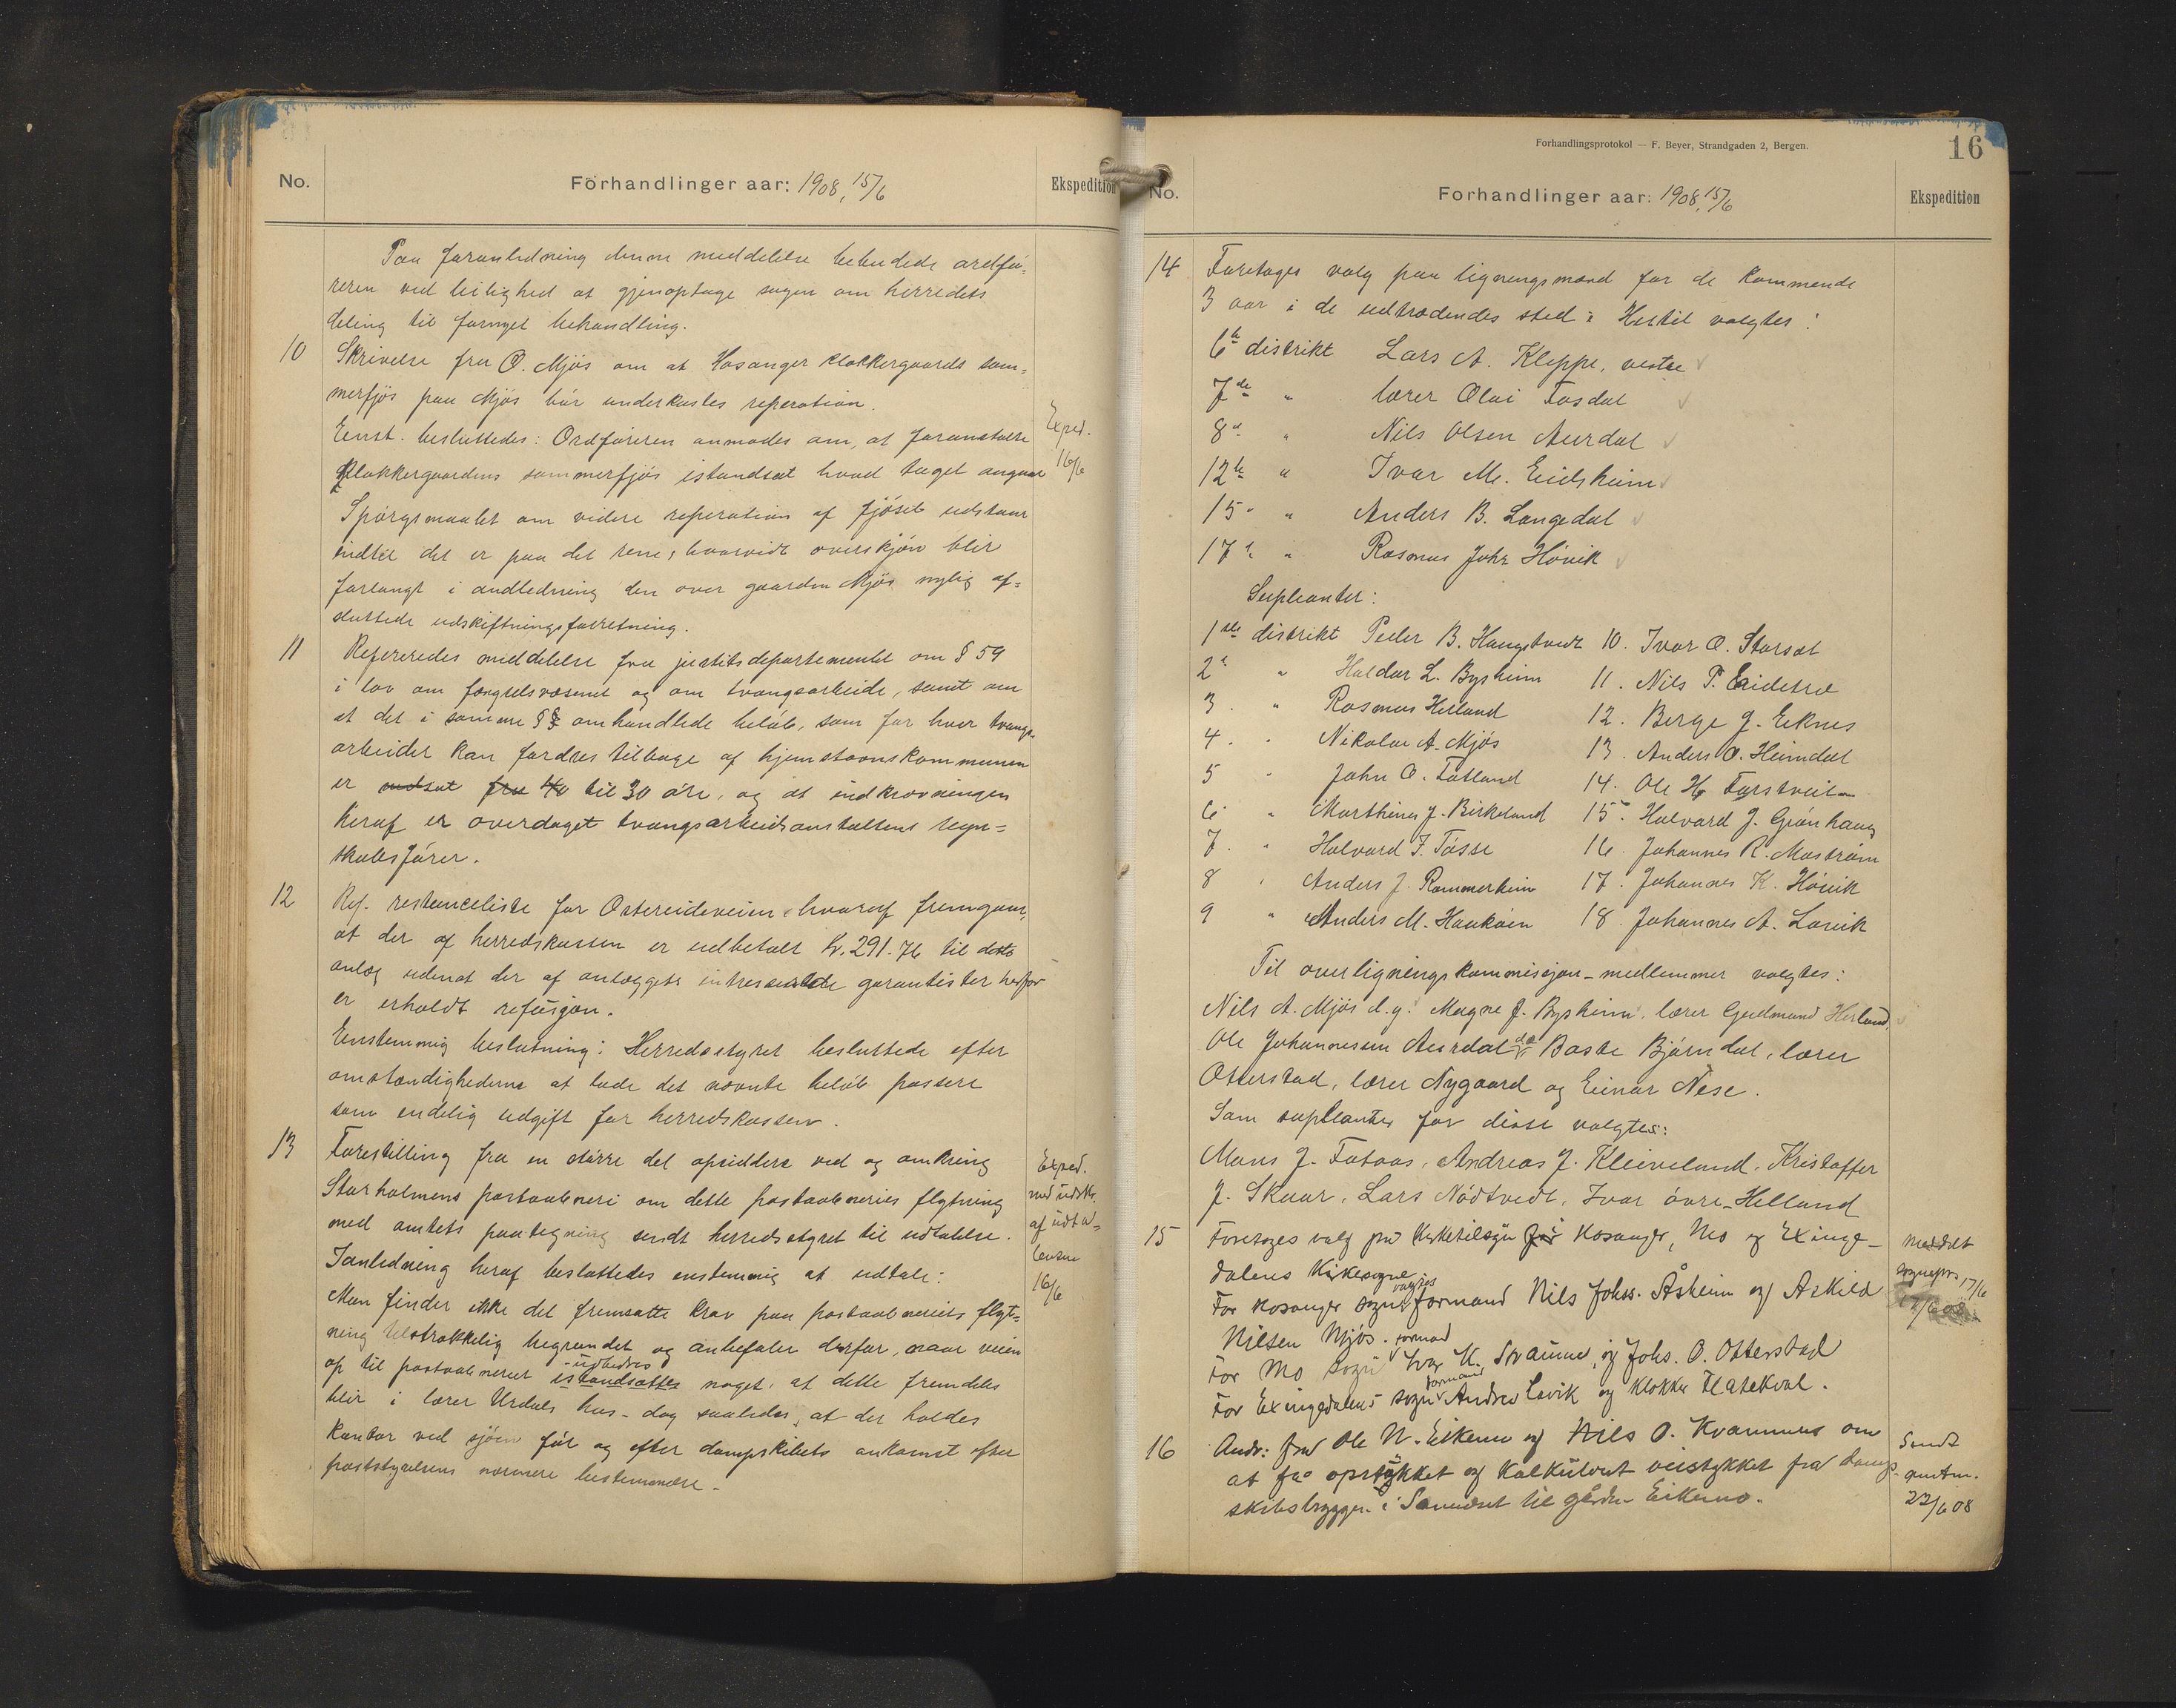 No.
Forhandlinger aar: 1908, 15/6
Ekspedition
Paa foranledning denne meddelelse bebudede ordfö-
reren ved leilighed at gjenoptage sagen om herredets
deling til fornyet behandling.
10 Skrivelse fra O. Mjös om at Hosanger klokkergaards som-
merfjös paa Mjös bör underkastes reperation.
Enst. besluttedes: Ordföreren anmodes om, at foranstalte
Klokkergaardens sommerfjös istandsat hvad taget angaar
Exped.
16/6
Spörgsmaalet om videre reperation af fjöset udstaar
indtil det er paa det rene, hvorvidt overskjön blir
forlangt i andledning den over gaarden Mjös nylig af-
sluttede udskiftningsforretning.
11 Refereredes meddelelse fra justitsdepartementet om § 59
i lov om fængselsvæsenet og om tvangsarbeide, samt om
at det i samme § omhandlede belöb, som for hver tvangs-
arbeider kan fordres tilbage af hjemstavnskommunen
er nedsat fra 40 til 30 öre, og at indkrævningen
heraf er overdaget tvangsarbeidsanstaltens regn-
skabsförer.
12 Ref. restanceliste for Ostereideveien, hvoraf fremgaar,
at der af herredskassen er udbetalt Kr. 291.76 til dette
anlæg udenat der af anlæggets intresserede garantister herfor
er erholdt refusjon.
Enstemmig beslutning: Herredsstyret besluttede efter
omstændighederne at lade det nævnte belöb passere
som endelig udgift for herredskassen.
13 Forestilling fra en större del opsiddere ved og omkring
Storholmens postaabneri om dette postaabneries flytning
med amtets paategning sendt herredsstyret til udtalelse.
Exped.
med udskr.
af udta-
lelsen
16/6
I anledning heraf besluttedes enstemmig at udtale:
Man finder ikke det fremsatte krav paa postaabneriets flyt-
ning tilstrækkelig begrundet og anbefaler derfor, naar veien
op til postaabneriet istandsættes udbedres noget, at dette fremdeles
blir i lærer Urdals hus - dog saaledes, at der holdes
kontor ved sjöen för og efter dampskibets ankomst efter
poststyrelsens nærmere bestemmelse.
Forhandlingsprotokol — F. Beyer, Strandgaden 2, Bergen.
16
No.
Forhandlinger aar: 1908, 15/6
Ekspedition
14 Foretoges valg paa ligningsmænd for de kommende
3 aar i de udtrædendes sted. Hertil valgtes:
6te distrikt Lars A. Kleppe, vestre
7de " lærer Olai Fosdal
8de " Nils Olsen Aurdal
12te " Ivar M. Eidsheim
15 " Anders B. Langedal
17de " Rasmus Johs Hövik
Supleanter:
1ste distrikt Peder B. Haugstvedt 10. Ivar O. Storset
2 " Haldor L. Bysheim 11. Nils P. Eidetræ
3. " Rasmus Herland 12. Berge J. Eknes
4. " Nikolai A. Mjös 13. Anders O. Heimdal
5 " John O. Totland 14. Ole H. Forstveit
6 " Marthines J. Birkeland 15. Halvard J. Grönhaug
7. " Halvard J. Tösse 16. Johannes R. Moström
8 " Anders J. Rommerheim 17. Johannes K. Hövik
9 " Anders M. Haukåen 18. Johannes A. Lavik
Til overligningskommisjon-medlemmer valgtes:
Nils A. Mjös d.y. Magne J. Bysheim, lærer Gudmund Herland,
Ole Johannessen Aurdal, Baste Björndal, lærer
Otterstad, lærer Nygaard og Einar Nese.
Som supleanter for disse valgtes:
Mons J. Fotaas, Andreas J. Kleiveland, Kristoffer
J. Skaar, Lars Nödtvedt, Ivar övre-Helland
15 Foretoges valg på Kirketilsyn for Hosanger, Mo og Exinge-
dalens Kirkesogne.
Meddelt
sognepr. 17/6
For Hosanger sogn valgtes formand Nils Johss. Åsheim og Askild
Nilsen Mjös.
For Mo sogn formand Ivar K. Straume, og Johs. O. Otterstad
For Exingedalens sogn formand Andreas Lavik og klokker Flatekval.
16 Andr: fra Ole N. Eikemo og Nils O. Kvamme om
at få opstykket og kalkulert veistykket fra damp-
skibsbryggen i Sanndet til gården Eikemo.
Sendt
amtm.
22/6 08